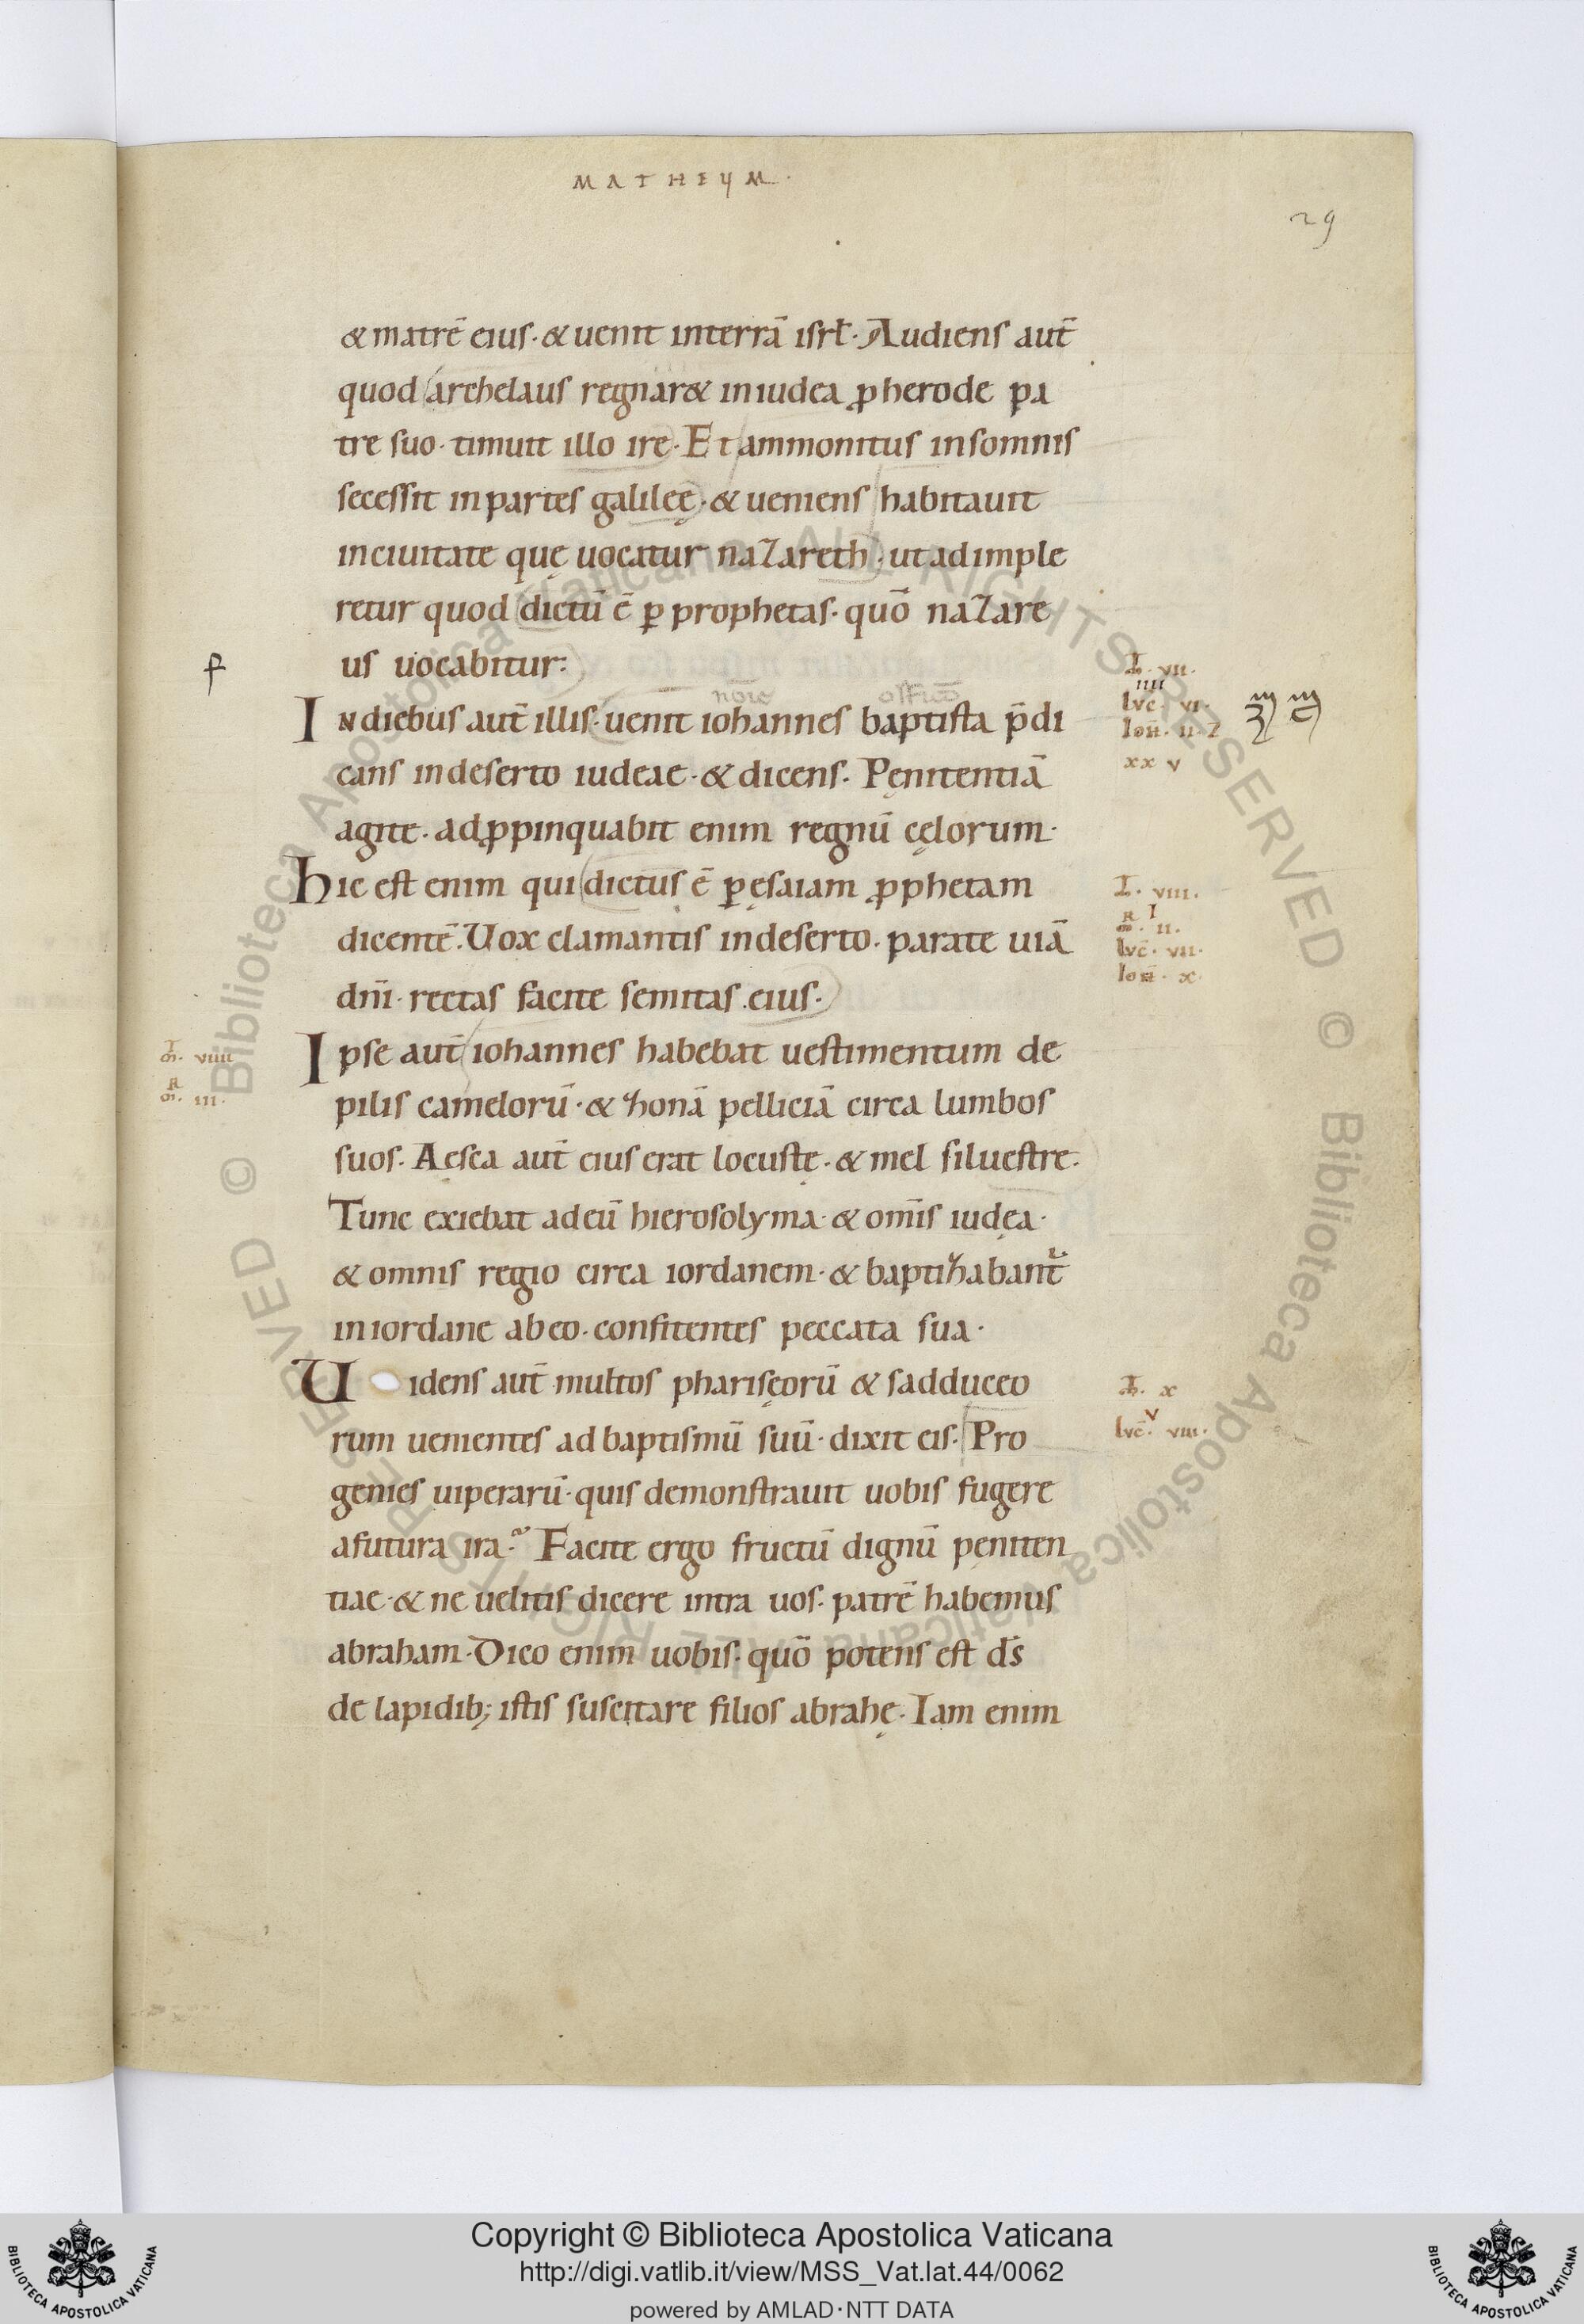 MATHEUM.
29
& matrē eius· & uenit interrā isrł· Audiens aut̄
quod archelaus regnar& iniudea ꝓherode pa
tre suo· timuit illo ire· Et ammonitus insomnis
secessit inpartes galileę· & ueniens habitauit
inciuitate quę uocatur nazareth· ut adimple
retur quod dictū ē ꝑ prophetas· quō nazare
us uocabitur:
In diebus aut̄ illis· uenit iohannes baptista p̄di
cans indeserto iudeae· & dicens· Pęnitentiā
agite· adꝓpinquabit enim regnū cęlorum·
hic est enim qui dictus ē ꝑ ęsaiam ꝓphetam
dicentē· Uox clamantis indeserto· parate uiā
dn̄i· rectas facite semitas eius·
Ipse aut̄ iohannes habebat uestimentum de
pilis camelorū· & zonā pelliciā circa lumbos
suos· Aesca aut̄ eius erat locustę· & mel siluestre·
Tunc exiebat adeū hierosolyma· & om̄is iudęa·
& omnis regio circa iordanem· & baptizabant̄
iniordane abeo· confitentes peccata sua·
Uidens aut̄ multos pharisęorū & sadduceo
rum uenientes ad baptismū suū· dixit eis· Pro
genies uiperarū· quis demonstrauit uobis fugere
afutura ira· Facite ergo fructū dignū pęniten
tiae· & ne uelitis dicere intra uos· patrē habemus
abraham· Dico enim uobis· quō potens est ds̄
de lapidib; istis suscitare filios abrahę· Iam enim
vii.
iiii
lvc̄· vi·
Ioh̄· ii·
xxv
viii.
I
ii.
lvc̄· vii·
Ioh̄· x·
viiii
iii.
x
v
lvc̄· viii·
Copyright © Biblioteca Apostolica Vaticana
http://digi.vatlib.it/view/MSS_Vat.lat.44/0062
powered by AMLAD·NTT DATA
BIBLIOTECA APOSTOLICA VATICANA
BIBLIOTECA APOSTOLICA VATICANA
© Biblioteca Apostolica Vaticana ALL RIGHTS RESERVED © Biblioteca Apostolica Vaticana ALL RIGHTS RESERVED